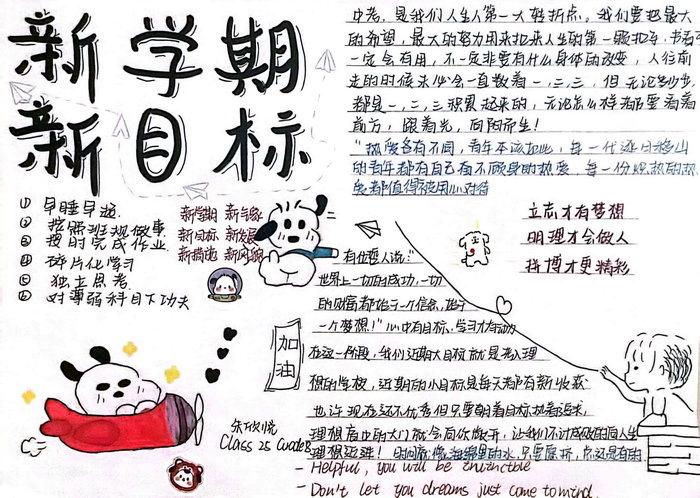 新学期
新目标
中考,是我们人生人第一大转折点,我们要把最大
的希望,最大的努力用来扣来人生的第一颗扣子,书
一定会有用,不一定非要有什么身体的改变,人往前
走的时候未必会一直数着一,二,三,但无论多少步
都是一,二,三积累起来的,无论怎么样都要看着
前方,跟着光,向阳而生!
"热爱各有不同,青年本该如此,每一代逐日移山
的青年都有自己奋不顾身的热爱,每一份炽热的热
爱都值得被用心对待
① 早睡早起
② 按照班规做事
③ 按时完成作业
④ 碎片化学习
⑤ 独立思考
⑥ 对薄弱科目下功夫
新学期 新气象
新目标 新发展
新挑选 新风貌
立志才有梦想
明理才会做人
拼搏才更精彩
有位哲人说:"
世界上一切的成功,一切
的财富都始于一个信念,始于
一个梦想!"心中有目标,学习才有动力
在这一阶段,我们近期大目标就是考入理
想的学校,近期的小目标是每天都有新收获
也许现在还不优秀但只要朝着目标执着追求,
理想高中的大门就会向你敞开,让我们不讨成功的同人生
理想迈进!时间就像海绵里的水,只要愿挤,总还是有的
加油
Class 25 Grade 8
- Helpful, you will be invincible
- Don't let you dreams just come to mind